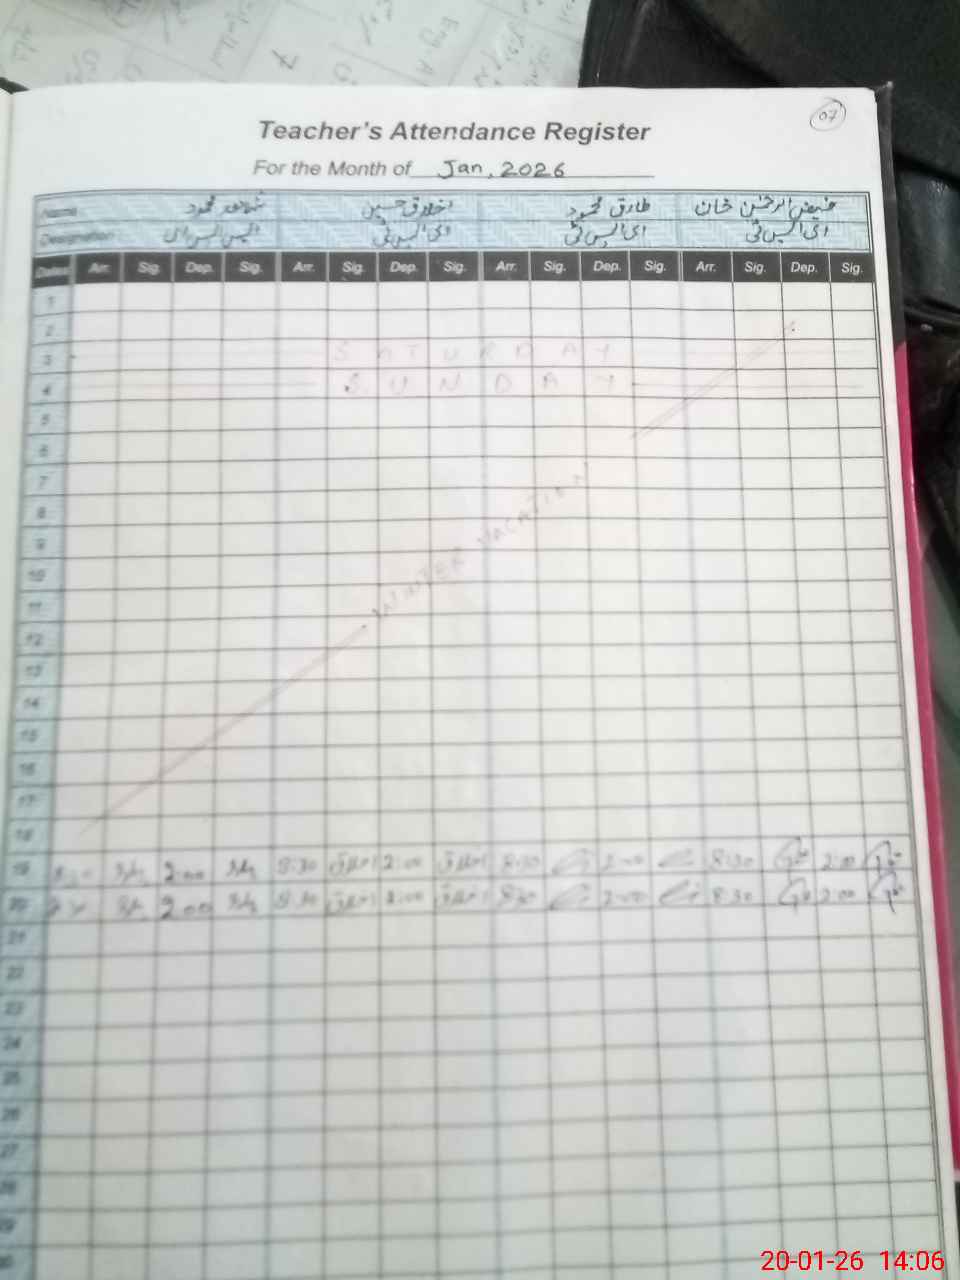 07
Teacher's Attendance Register
For the Month of Jan, 2026
Name محمود اخلاق حسین طارق محمود فیض الرحمٰن خان
Designation ایس ایس ای ای ایس ٹی ای ایس ٹی ای ایس ٹی
Dates Arr. Sig. Dep. Sig. Arr. Sig. Dep. Sig. Arr. Sig. Dep. Sig. Arr. Sig. Dep. Sig.
1
2
3 SATURDAY
4 SUNDAY
5
6
7
8
9
WINTER VACATION
10
11
12
13
14
15
16
17
18
19 2:00 8:30 اخلاق 2:00 اخلاق 8:30 2:00 8:30 2:00
20 2:00 8:30 اخلاق 2:00 اخلاق 8:30 2:00 8:30 2:00
21
22
23
24
25
26
27
28
29
30
20-01-26 14:06